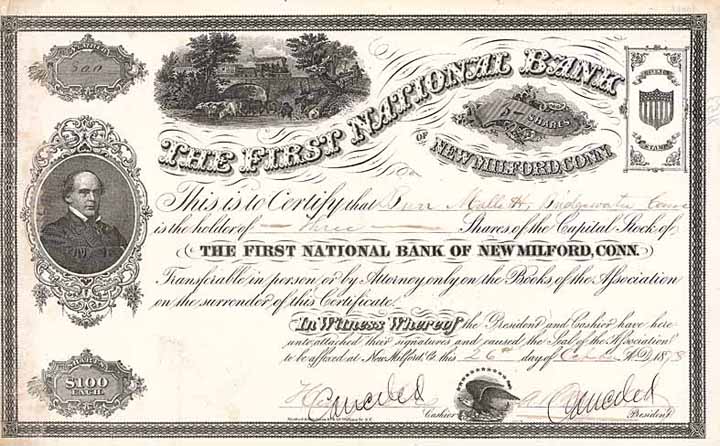 300
THE FIRST NATIONAL BANK
OF NEW MILFORD, CONN.
SHARES
STAMP
This is to Certify that Burr Mallett, Bridgewater Conn
is the holder of three Shares of the Capital Stock of
THE FIRST NATIONAL BANK OF NEW MILFORD, CONN.
Transferable in person or by Attorney only on the Books of the Association
on the surrender of this Certificate.
In Witness Whereof the President and Cashier have here
unto attached their signatures and caused the Seal of the Association
to be affixed at New Milford, Ct. this 26th day of A.D. 1878
$100
EACH
Canceled Cashier Canceled President